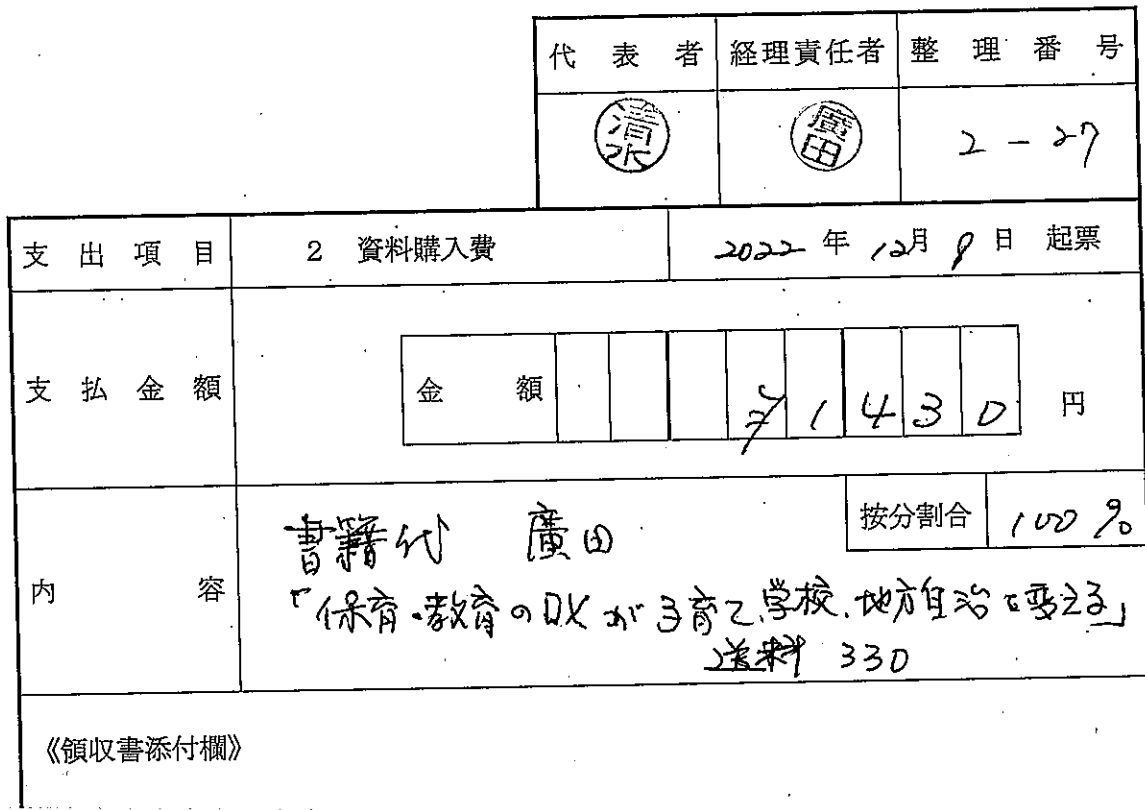 代表者 経理責任者 整理番号
清水 廣田 2-27
支出項目 2 資料購入費 2022年12月9日 起票
支払金額 金額 1430 円
按分割合 100%
内容 書籍代 廣田
「保育・教育のDXが子育て、学校、地方自治を変える」
送料 330
《領収書添付欄》